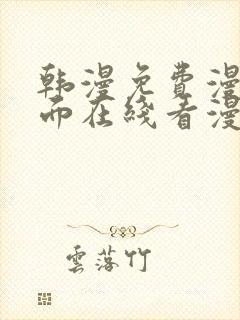 韩漫免费漫
而在线看漫
雲落竹